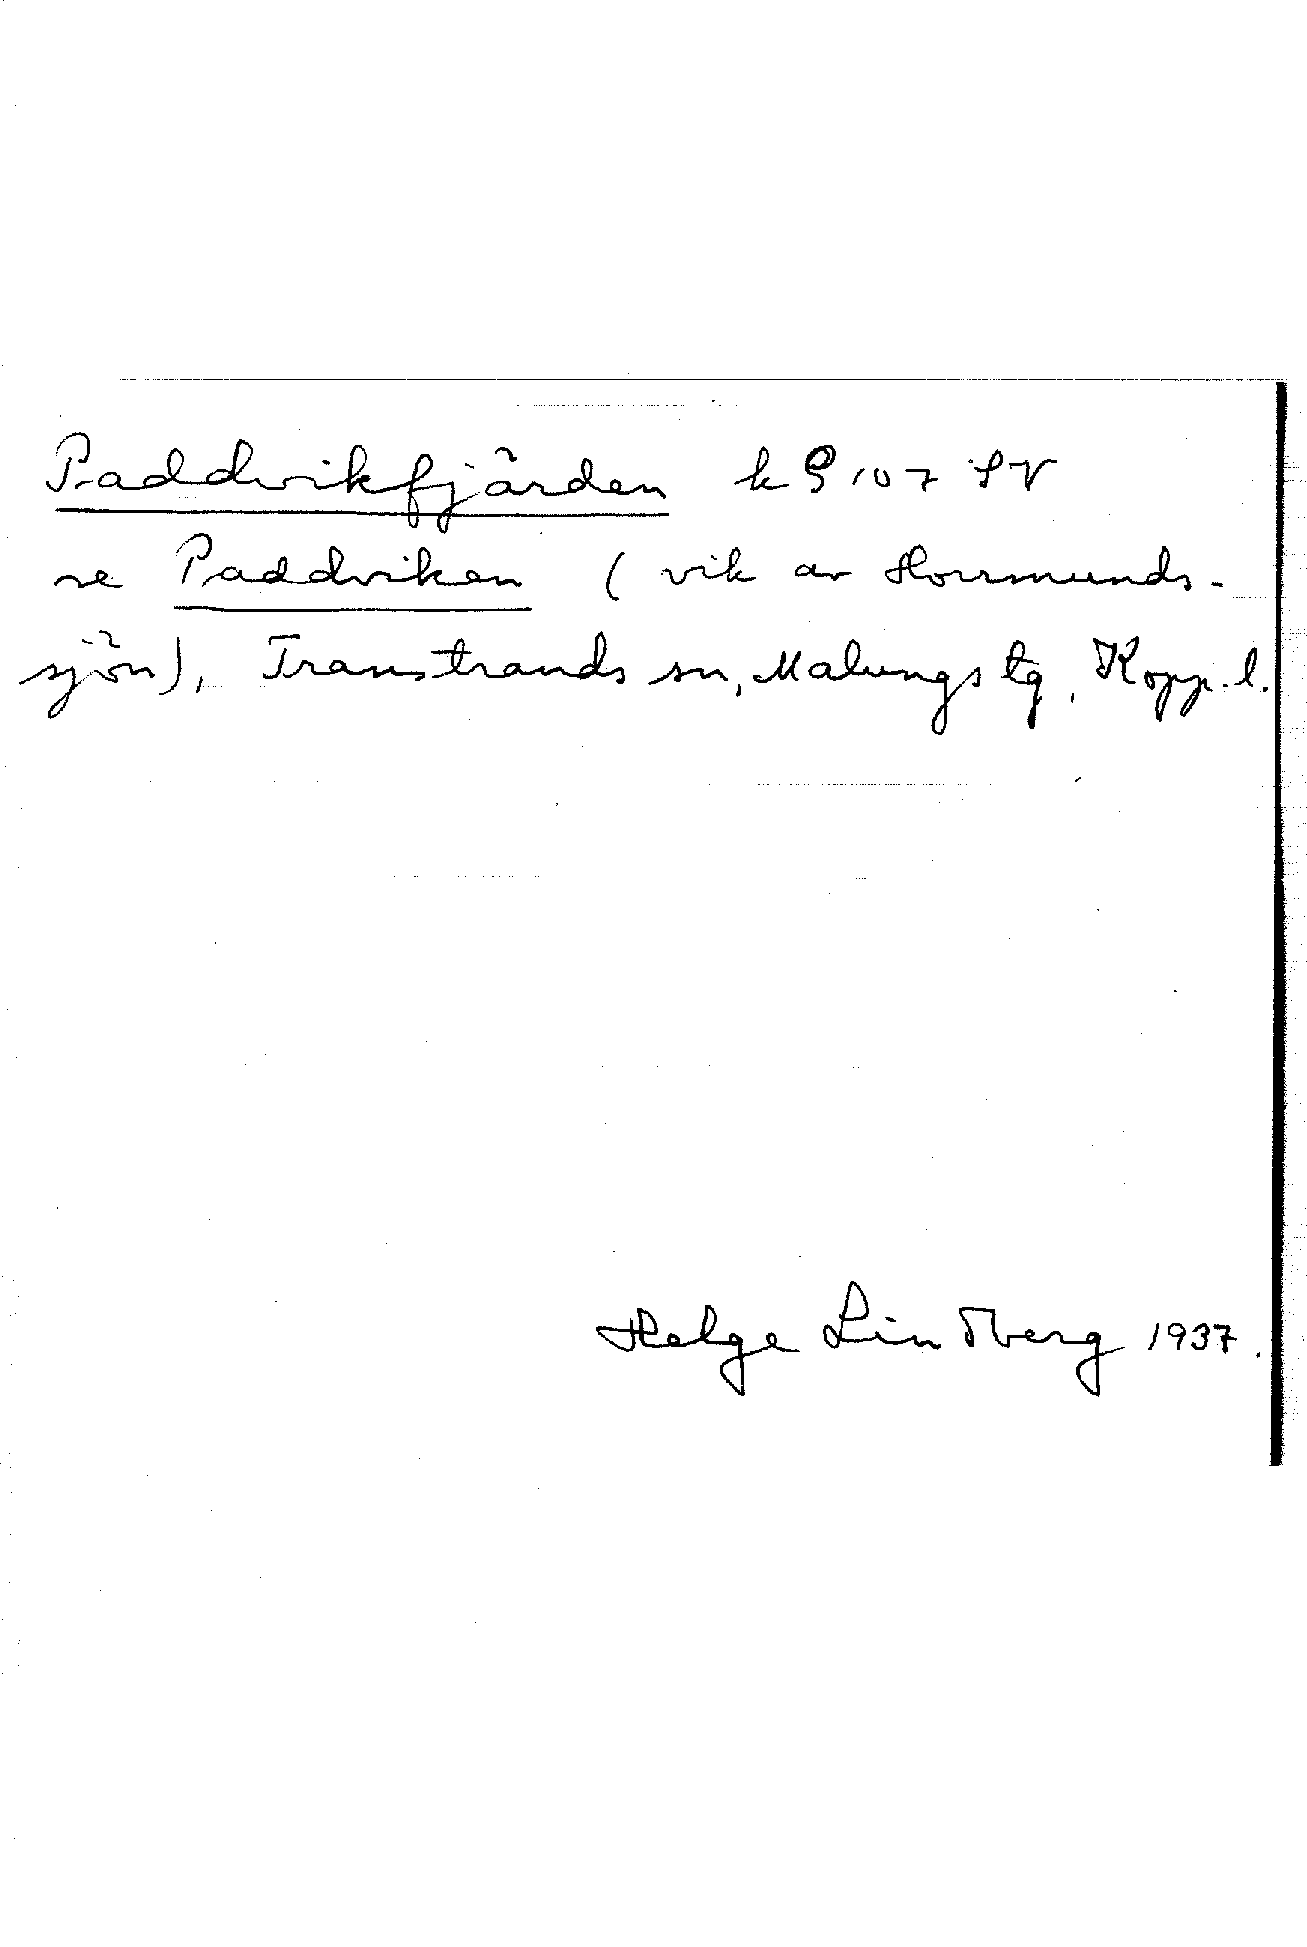 Paddvikfjärden k 9 107 SV
se Paddviken (vik av Horrmunds-
sjön), Transtrands sn, Malungs tg, Kopp. l.
Helge Lindberg 1937.